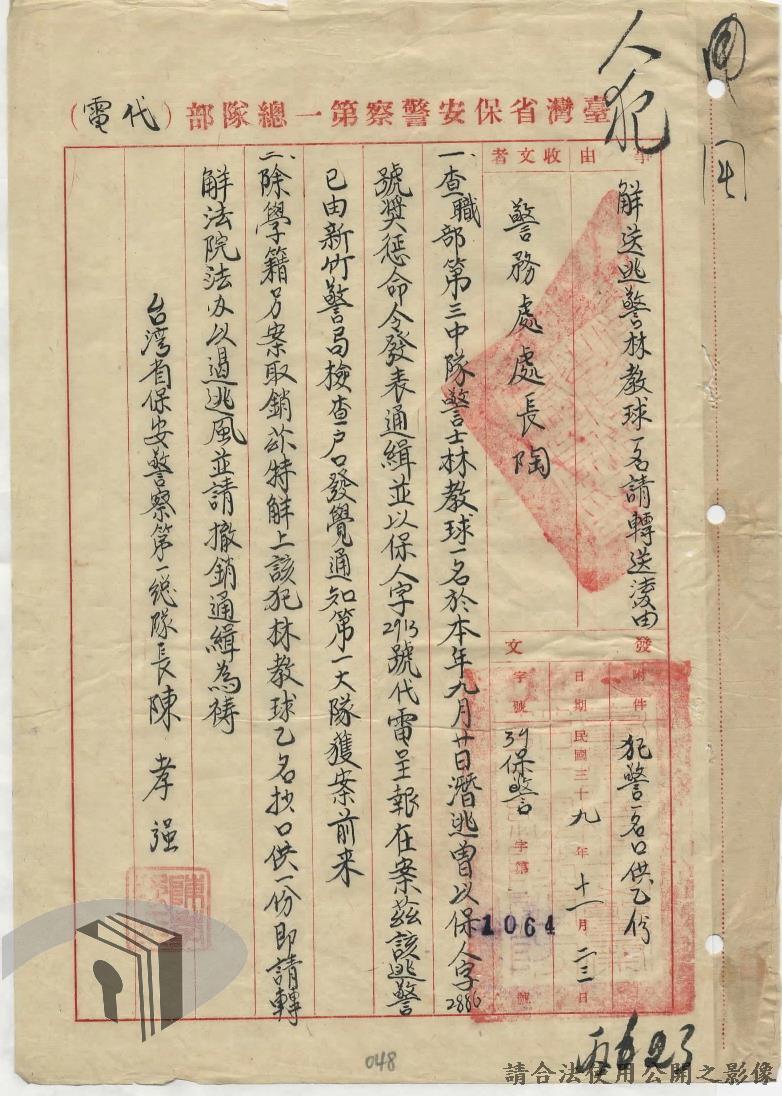 人犯
臺灣省保安警察第一總隊部（代電）
事由
解送逃警林教球一名請轉送凌由
收文者
警務處處長陶
發文
附件
犯警一名口供乙份
日期
民國三十九年十一月二三日
字號
39保警
字第
1064
號
一、查職部第三中隊警士林教球一名於本年九月廿日潛逃曾以保人字2886
號獎懲命令發表通緝並以保人字2913號代電呈報在案茲該逃警
已由新竹警局檢查戶口發覺通知第一大隊獲案前來
二、除學籍另案取銷外特解上該犯林教球乙名抄口供一份即請轉
解法院法办以遏逃風並請撤銷通緝為禱
台湾省保安警察第一總隊長陳孝强
048
請合法使用公開之影像